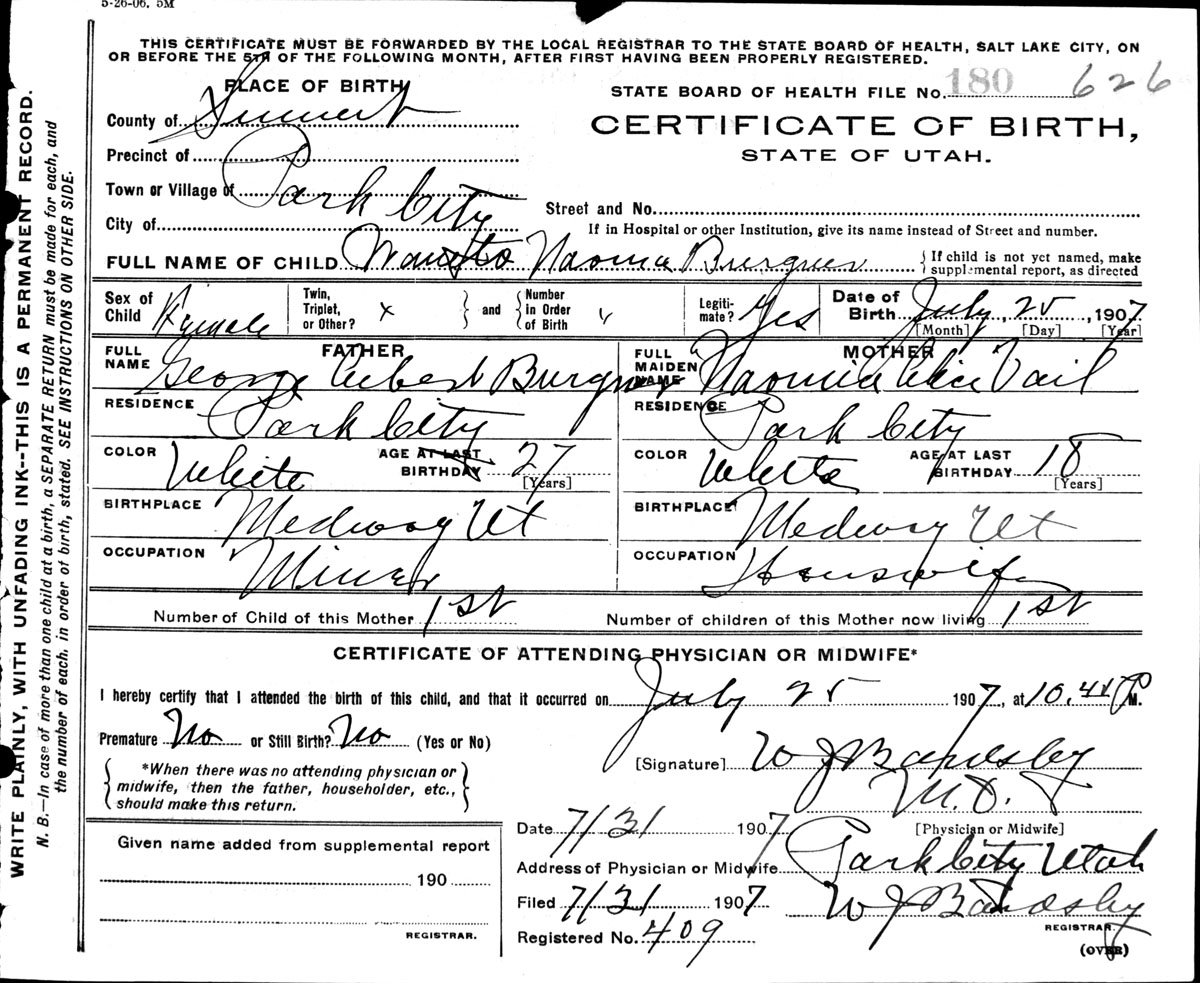 5-26-06. 5M
THIS CERTIFICATE MUST BE FORWARDED BY THE LOCAL REGISTRAR TO THE STATE BOARD OF HEALTH, SALT LAKE CITY, ON
OR BEFORE THE 5TH OF THE FOLLOWING MONTH, AFTER FIRST HAVING BEEN PROPERLY REGISTERED.
PLACE OF BIRTH
County of Summit
Precinct of
Town or Village of Park City
City of
STATE BOARD OF HEALTH FILE No. 180 626
CERTIFICATE OF BIRTH,
STATE OF UTAH.
Street and No.
If in Hospital or other Institution, give its name instead of Street and number.
FULL NAME OF CHILD Naomia Burgner
If child is not yet named, make
supplemental report, as directed
Sex of Child Female
Twin, Triplet, or Other? x
and
Number in Order of Birth "
Legiti-mate? Yes
Date of Birth July 25, 1907
[Month] [Day] [Year]
FATHER
FULL NAME George Burgner
RESIDENCE Park City
COLOR White
AGE AT LAST BIRTHDAY 27
[Years]
BIRTHPLACE Medway Ut
OCCUPATION Miner
MOTHER
FULL MAIDEN NAME Naomia Alice Vail
RESIDENCE Park City
COLOR White
AGE AT LAST BIRTHDAY 18
[Years]
BIRTHPLACE Medway Ut
OCCUPATION Houswife
Number of Child of this Mother 1st
Number of children of this Mother now living 1st
CERTIFICATE OF ATTENDING PHYSICIAN OR MIDWIFE*
I hereby certify that I attended the birth of this child, and that it occurred on July 25 1907, at P M.
Premature No or Still Birth? No (Yes or No)
*When there was no attending physician or
midwife, then the father, householder, etc.,
should make this return.
[Signature] W J Bardsby
M.D.
[Physician or Midwife]
Date 7/31 1907
Address of Physician or Midwife Park City Utah
Filed 7/31 1907
W J Bardsby
REGISTRAR.
Registered No. 409
(OVER)
Given name added from supplemental report
190
REGISTRAR.
WRITE PLAINLY, WITH UNFADING INK--THIS IS A PERMANENT RECORD.
N. B.—In case of more than one child at a birth, a SEPARATE RETURN must be made for each, and
the number of each, in order of birth, stated. SEE INSTRUCTIONS ON OTHER SIDE.